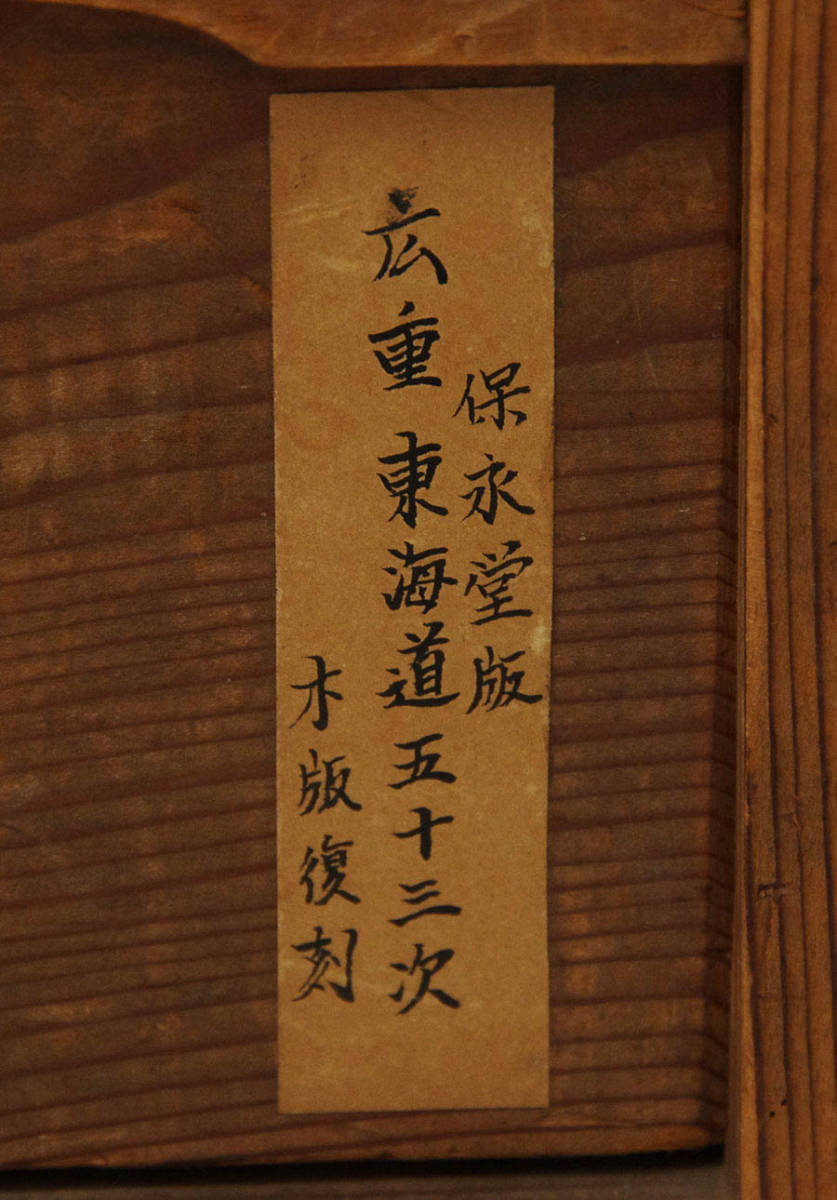 保永堂版
広重東海道五十三次
木版復刻